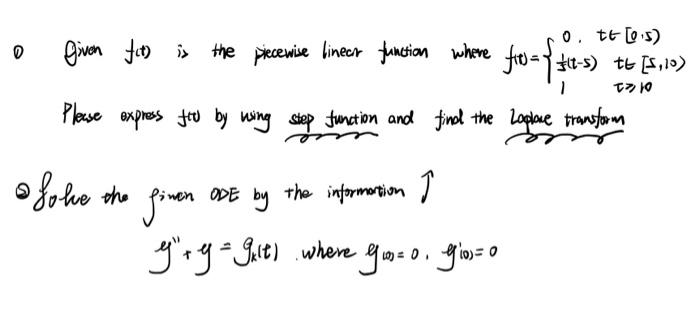 ① Given f(t) is the piecewise linear function where f(t) = { 0, t∈[0,5)
⅕(t-5) t∈[5,10)
1 t≥10
Please express f(t) by using step function and find the Laplace transform
② Solve the given ODE by the information ↑
y'' + y = g_k(t) where y(0) = 0, y'(0) = 0